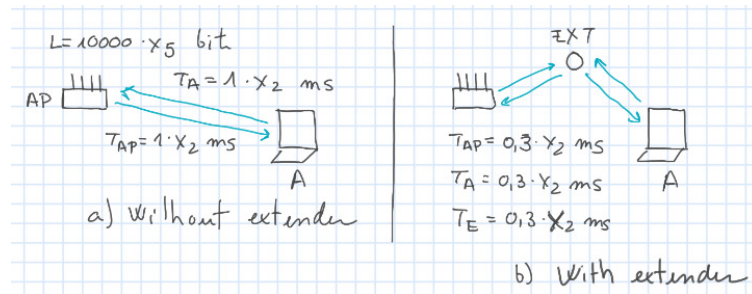 L=10000·X5 bit
TA = 1·X2 ms
AP
TAP=1·X2 ms
A
a) Without extender
EXT
TAP = 0,3·X2 ms
TA = 0,3·X2 ms
A
TE = 0,3·X2 ms
b) With extender